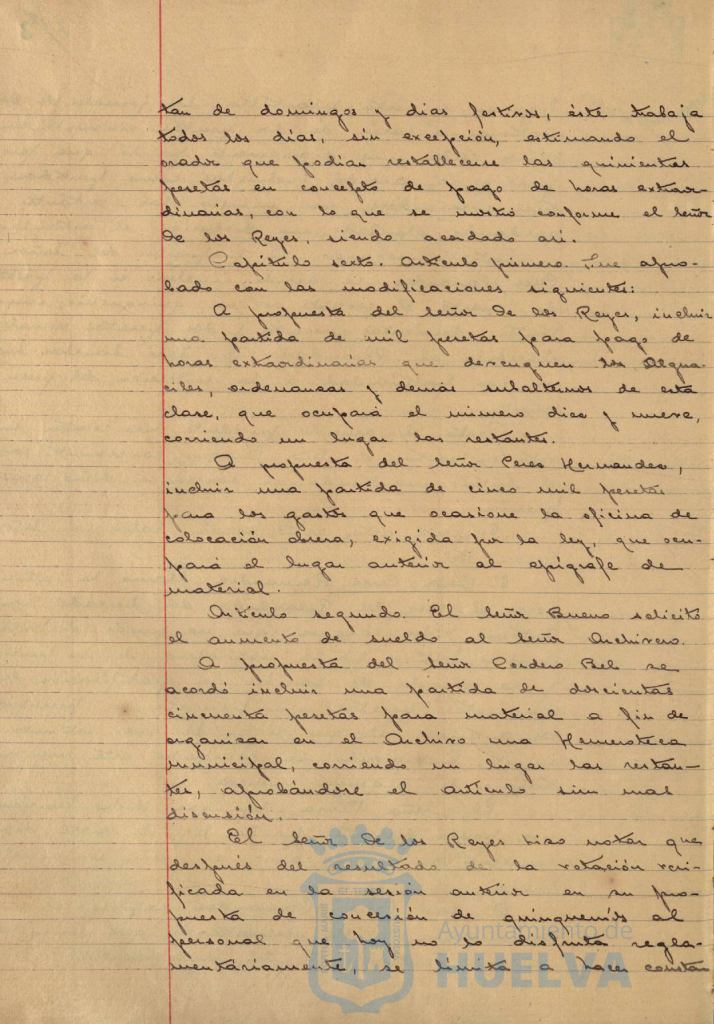 tan de domingos y dias festivos, éste trabaja
todos los días, sin excepción, estimando el
orador que podian restablecerse las quinientas
pesetas en concepto de pago de horas extraor-
dinarias, con lo que se mostró conforme el Señor
de los Reyes, siendo acordado asi.
Capítulo sexto. Artículo primero. Fue apro-
bado con las modificaciones siguientes:
A propuesta del Señor de los Reyes, incluir
una partida de mil pesetas para pago de
horas extraordinarias que devenguen los Algua-
ciles, ordenanzas y demás subalternos de esta
clase, que ocupará el número diez y nueve,
corriendo un lugar las restantes.
A propuesta del Señor Peres Hernandez,
incluir una partida de cinco mil pesetas
para los gastos que ocasione la oficina de
colocación obrera, exigida por la ley, que ocu-
pará el lugar anterior al epígrafe de
material.
Artículo segundo. El Señor Bueno solicitó
el aumento de sueldo al Señor Archivero.
A propuesta del Señor Cordero Bel se
acordó incluir una partida de doscientas
cincuenta pesetas para material a fin de
organizar en el Archivo una Hemeroteca
municipal, corriendo un lugar las restan-
tes, aprobándose el artículo sin mas
discusión.
El Señor de los Reyes hizo notar que
después del resultado de la votación veri-
ficada en la sesión anterior en su pro-
puesta de concesión de quinquenios al
personal que hoy no lo disfruta regla-
mentáriamente, se limita a hacer constar
Ayuntamiento de
HUELVA